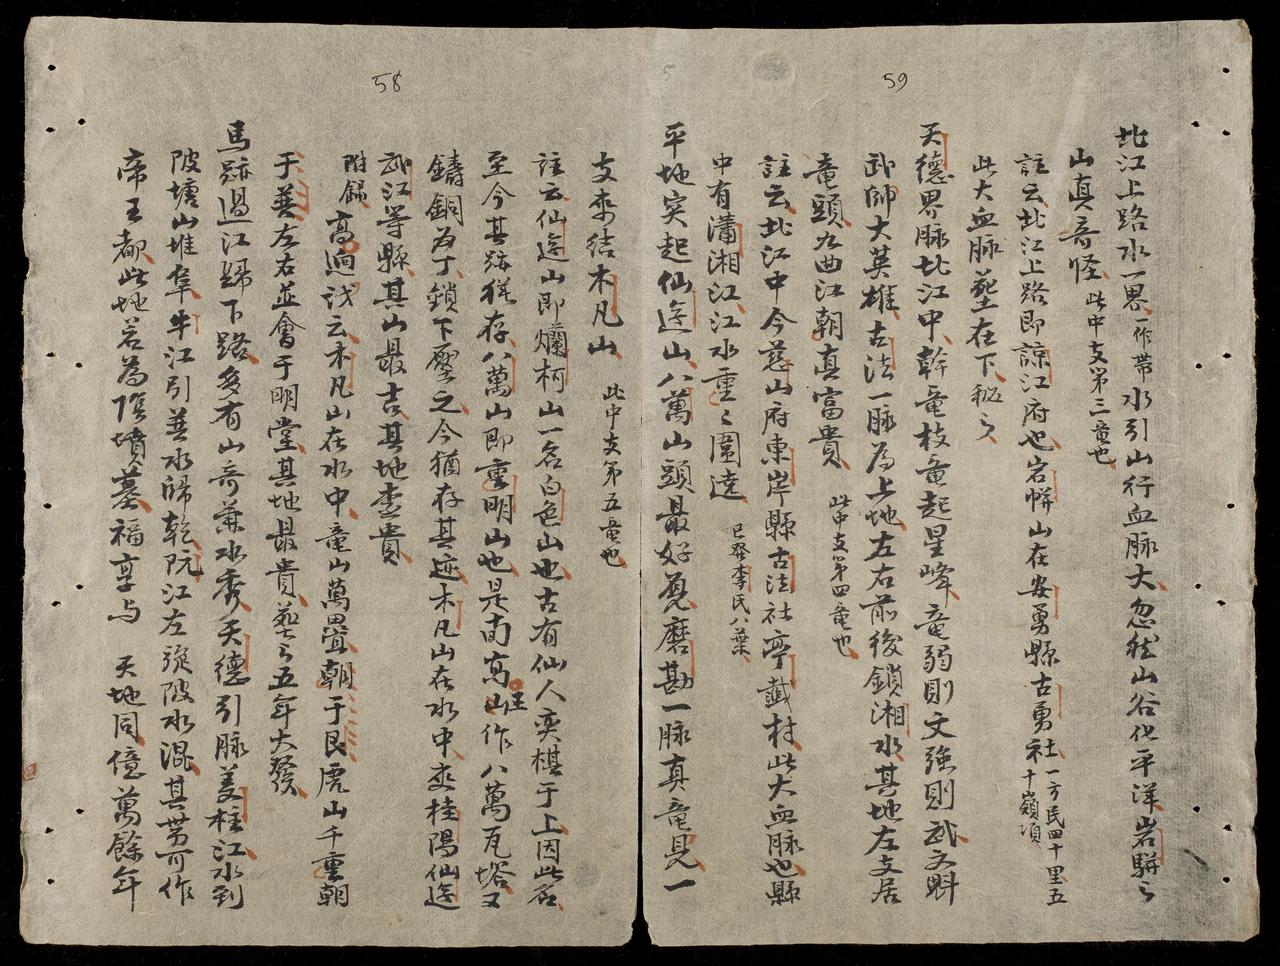 59
北江上路水一界一作带水引山行血脉大忽然山谷化平洋岩駢之
山真奇怪此中支第三竜也
註云北江上路即諒江府也岩帡山在安勇縣古勇社一方民四十里五十嶺項
此大血脉塟在下秘之
天德界脉北江中幹竜枝竜起星峰竜弱則文強則武文魁
武帥大英雄古法一脉為上地左右前後鎖湘水其地左支居
竜頭九曲江朝真富貴此中支第四竜也
註云北江中今慈山府東岸縣古法社亭村此大血脉也縣
中有瀟湘江江水重〻圍遶已發李氏八葉
平地突起仙遊山八萬山頭最好覔磨勘一脉真竜見一
58
支来結木凡山此中支第五竜也
註云仙遊山即爛柯山一名白色山也古有仙人奕棋于上因此名
至今其跡猶存八萬山即重明山也是高王山作八萬瓦塔又
鑄銅為丁鎖下壓之今猶存其迹木凡山在水中夾桂陽仙遊
武江等縣其山最吉其地本貴
附錄高迥訪云木凡山在水中竜山萬疊朝于艮虎山千重朝
于巽左右並會于明堂其地最貴塟之五年大發
馬跡過江歸下路多有山奇兼水秀天德引脉姜柱江水到
陂塘山堆阜牛江引巽水歸乾阮江左旋陂水混其勢可作
帝王都此地若為陰墳墓福享与 天地同億萬餘年